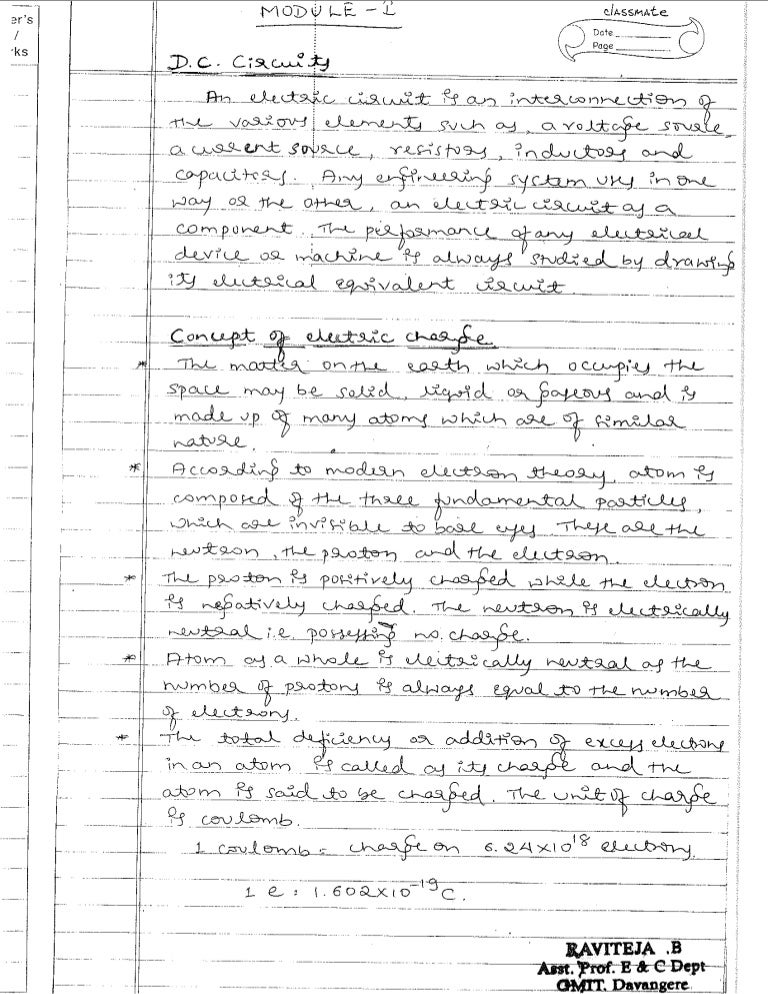 MODULE - I
classmate
er's
/
ks
Date
Page
D.C. Circuits
An electric circuit is an interconnection of
the various elements such as, a voltage source,
a current source, resistors, inductors and
capacitors. Any engineering system uses in one
way or the other, an electric circuit as a
component. The performance of any electrical
device or machine is always studied by drawing
its electrical equivalent circuit.
Concept of electric charge
* The matter on the earth which occupies the
space may be solid, liquid or gaseous and is
made up of many atoms which are of similar
nature.
* According to modern electron theory, atom is
composed of the three fundamental particles,
which are invisible to bare eyes. These are the
neutron, the proton and the electron.
* The proton is positively charged while the electron
is negatively charged. The neutron is electrically
neutral i.e. possessing no. charge.
* Atom as a whole is electrically neutral as the
number of protons is always equal to the number
of electrons.
* The total deficiency or addition of excess electrons
in an atom is called as its charge and the
atom is said to be charged. The unit of charge
is coulomb.
1 coulomb = charge on 6.24×10¹⁸ electrons.
1 e = 1.602×10⁻¹⁹ C.
RAVITEJA .B
Asst. Prof. E & C Dept
GMIT. Davangere